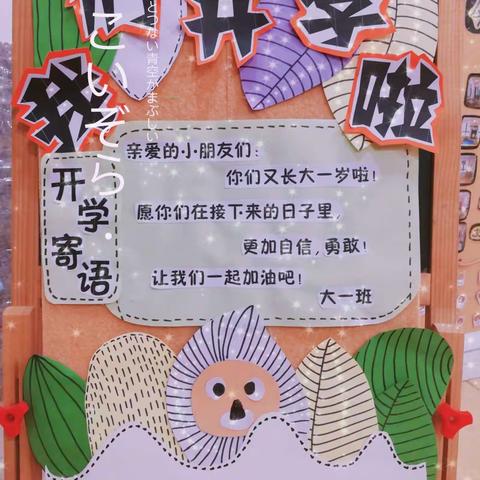 我们开学啦
こいぞら
とつない青空がまぶしい
开学寄语
亲爱的小朋友们：
你们又长大一岁啦！
愿你们在接下来的日子里，
更加自信，勇敢！
让我们一起加油吧！
大一班